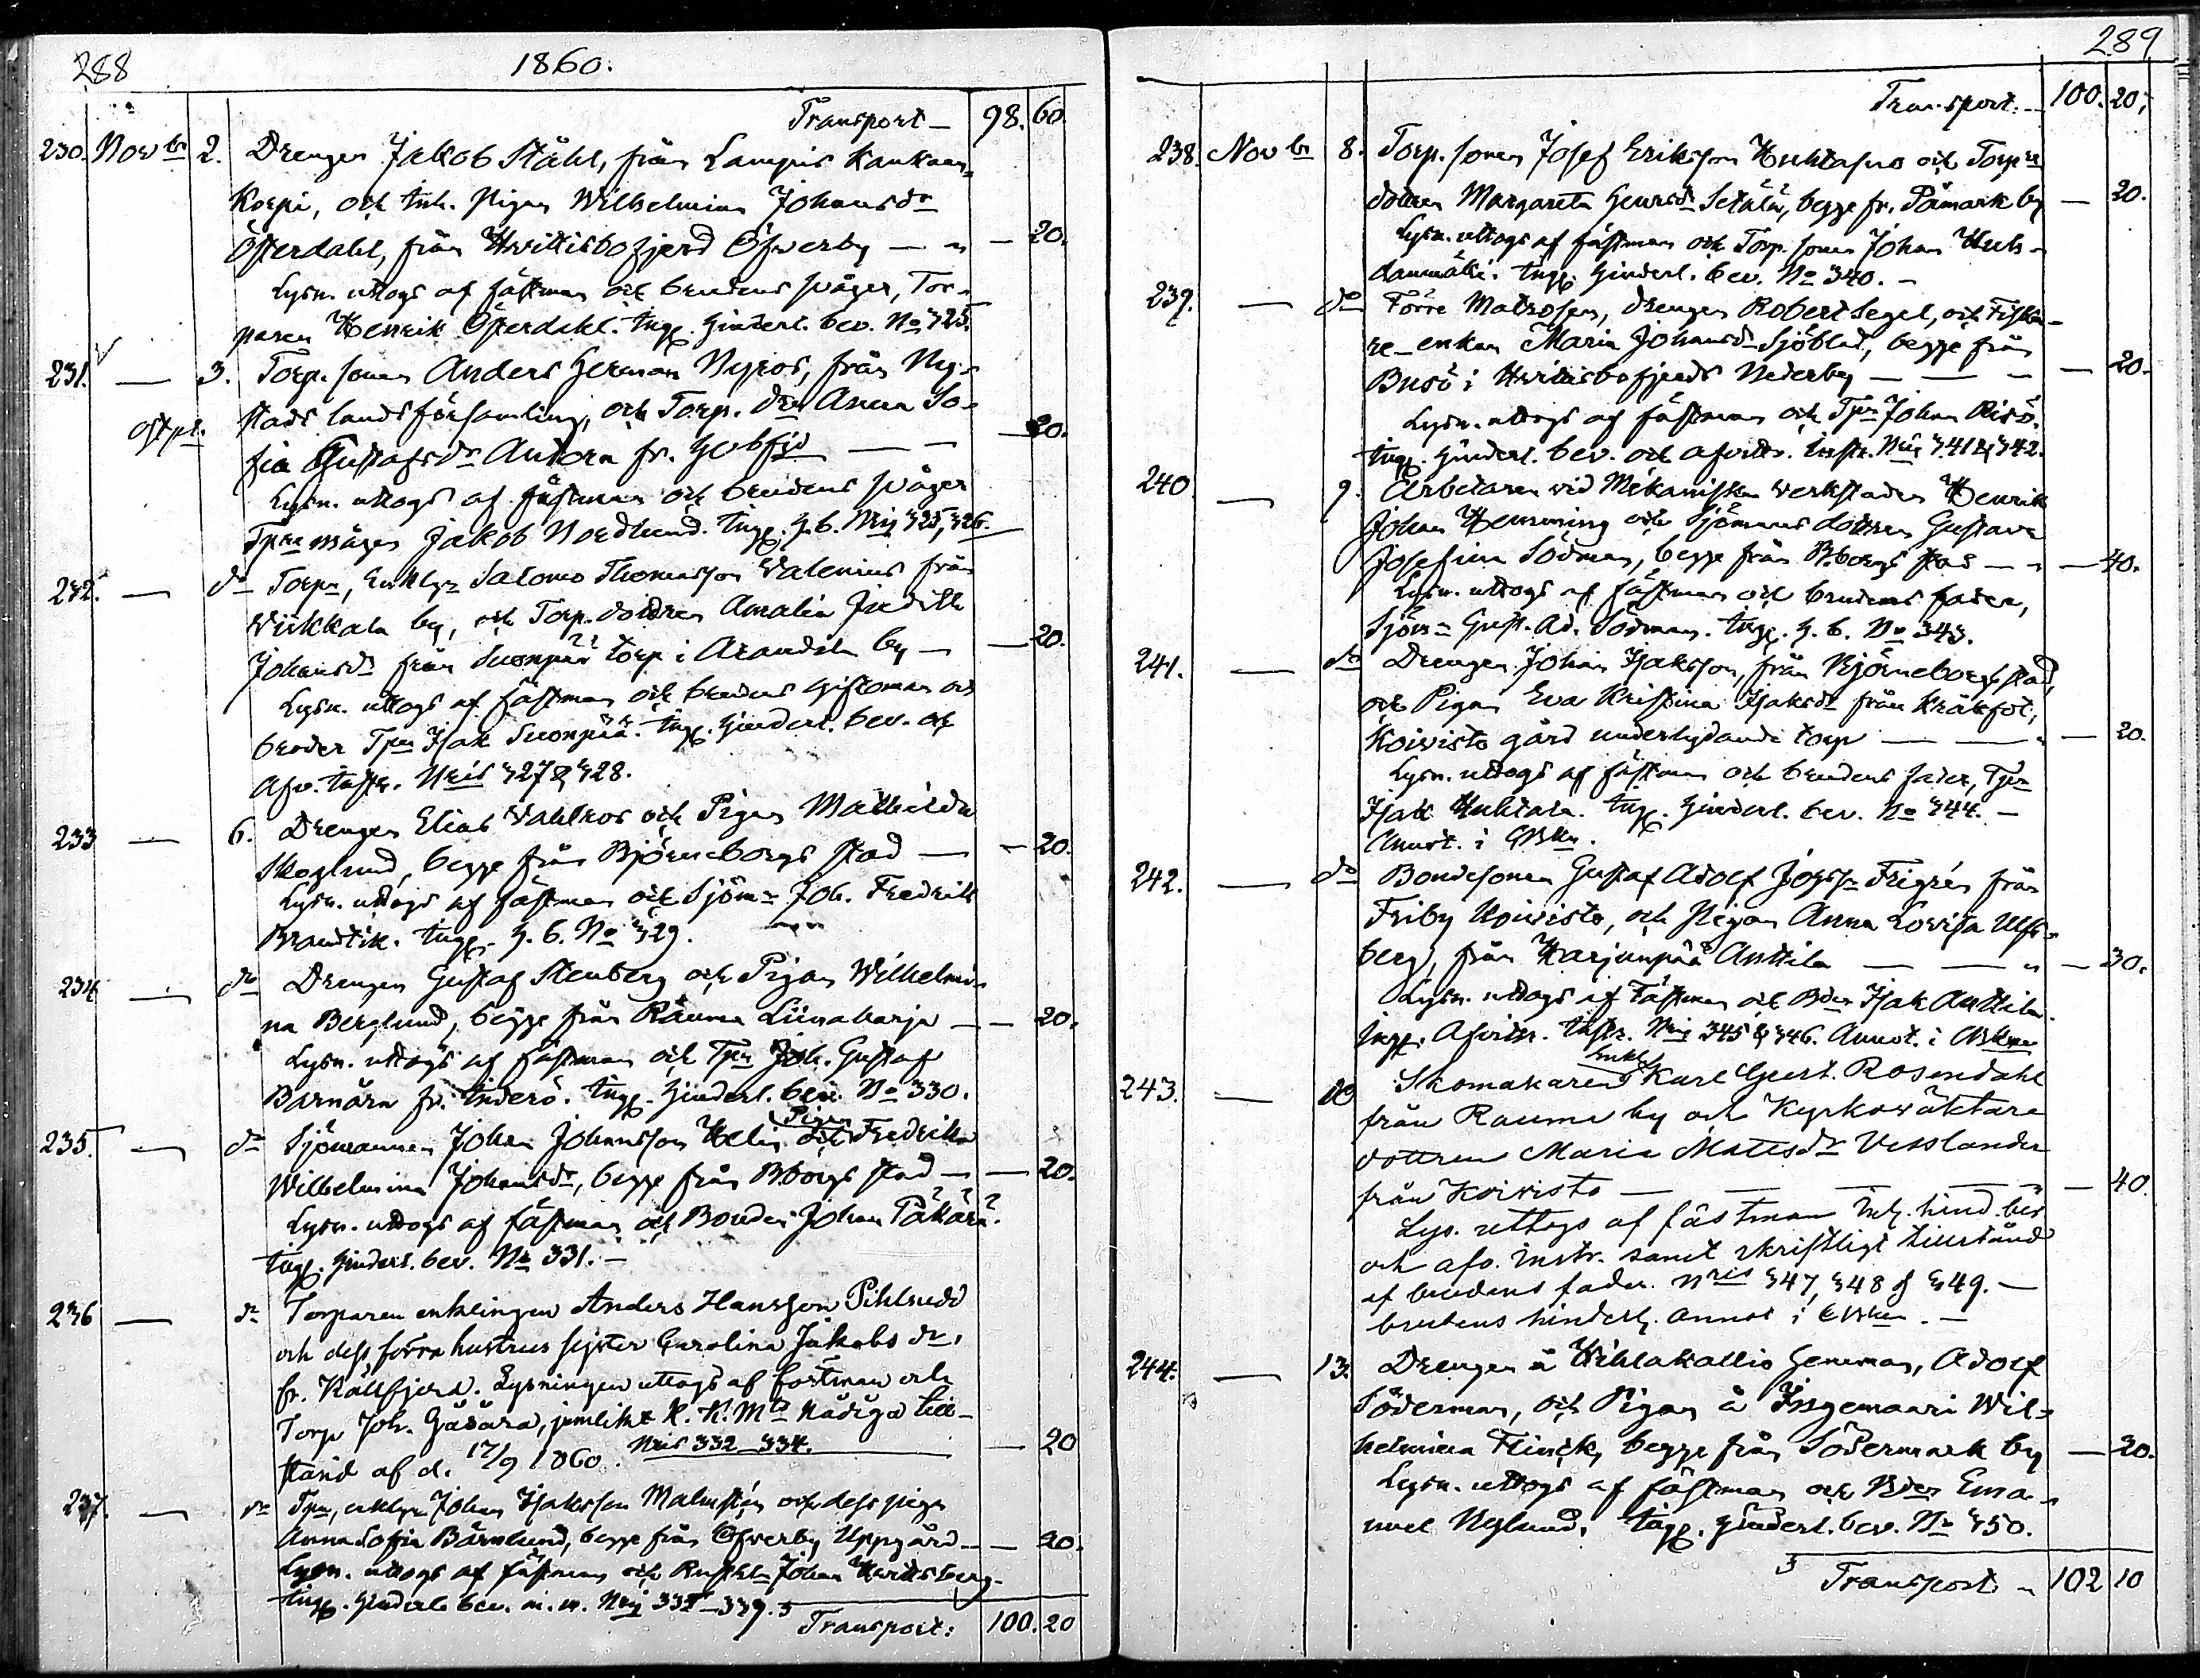 288
1860.
Transport — 98. 60.
230. Novbr 2. Drengen Jakob Ståhl, från Lampis Kankaan-
korpi, och Inh. Pigan Wilhelmina Johansdr
Österdahl, från Hvittisbofjerd Öfverby — — 20.
Lysn. uttogs af fästman och brudens svåger, Tor-
paren Henrik Österdahl. Ingg. Hinderl. bev. No 325.
231. — 3. Torp. sonen Anders Herman Nyroos, från Ny-
stads landsförsamling, och Torp. dr Anna So-
fia Gustafsdr Antora fr. — 20.
Lysn. uttogs af fästman och brudens svåger
Jakob Nordlund. Ingg. H. b. Nris 325, 326.
232. — do Torpn, Enkl. Salomo Thomasson Valenius från
Wiikkala by, och Torp. dottren Amalia Judith
Johansdr från Suonpää torp i Arandila by — — 20.
Lysn. uttogs af fästman och brudens giftoman och
broder Tpn Isak Suonpää. Ingg. Hinderl. bev. och
Afv. Instr. Nris 327 & 328.
233 — 6. Drengen Elias Vahlroos och Pigan Mathilda
Skoglund, begge från Björneborgs stad — — 20.
Lysn. uttogs af fästman och Sjömn Joh. Fredrik
Brandtik. Ingg. H. b. No 329.
234 — do Drengen Gustaf Stenberg och Pigan Wilhelmi-
na Berglund, begge från Rauma Liinaharja — — 20.
Lysn. uttogs af fästman och Tpn Joh. Gustaf
Barnära fr. Inderö. Ingg. Hinderl. bev. No 330.
235. — do Sjömannen Johan Johansson Helin och Pigan Fredrika
Wilhelmina Johansdr, begge från Bborgs stad — — 20.
Lysn. uttogs af fästman och Bonden Johan Päkärä.
Ingg. Hinderl. bev. No 331. —
236 — do Torparen enklingen Anders Hansson Pihlsudd
och dess förra hustrus syster Carolina Jakobs dr,
fr. Källfjerd. Lysningen uttogs af fästman och
Torp Joh. Gäddra, jemlikt K. K. Mts Nådiga till-
stånd af d. 17/9 1860. Nris 332–334. — 20
237. — do Tpn, enkl. Johan Isaksson Malmstén och dess piga
Anna Sofia Bärnlund, begge från Öfverby Uppgård — — 20.
Lysn. uttogs af fästman och Johan Hvittisberg.
Ingg. Hinderl. bev. m. m. Nris 335–339.
Transport: 100. 20
289
Transport. — 100. 20.
238. Novbr 8. Torp. sonen Josef Eriksson Huhtasuo och Torpre
dottren Margareta Henrsdr Setälä, begge fr. Påmark by — 20.
Lysn. uttogs af fästman och Torp. sonen Johan Huh-
danmäki. Ingg. Hinderl. bev. No 340. —
239. — do Förre Matrosen, drengen Robert Segel, och Fiska-
re-enkan Maria Johansdr Sjöblad, begge från
Busö i Hvittisbofjerds Nederby — — — 20.
Lysn. uttogs af fästman och Tpn Johan Risö.
Ingg. Hinderl. bev. och afvittr. instr. Nris 341 & 342.
240 — 9. Arbetaren vid Mekaniska verkstaden Henrik
Johan Hemming och Sjömans dottren Gustava
Josefina Södman, begge från Bborgs stad — — 40.
Lysn. uttogs af fästman och brudens fader,
Sjömn Gust. Ad. Södman. Ingg. H. b. No 343.
241. — do Drengen Johan Isaksson, från Björneborgs stad,
och Pigan Eva Kristina Isaksdr från Kråkfot,
Koivisto gård underlydande torp — — — 20.
Lysn. uttogs af fästman och brudens fader, Tpn
Isak Huhtala. Ingg. Hinderl. bev. No 344. —
Annot. i
242. — do Bondesonen Gustaf Adolf Frigrén från
Friby Koivisto, och Pigan Anna Lovisa Ulfs-
berg, från Harjunpää Anttila — — — 30.
Lysn. uttogs af Fästman och Isak Anttila
Ingg. Afvittr. instr. Nris 345 & 346. Annot. i
243. — do Skomakaren Enkl. Karl Gust. Rosendahl
från Rauma by och Kyrkoväktare
dottren Maria Matts dr Vesslander
från Koivisto — — — 40.
Lys. uttogs af fästman Inl. hind. bev
och afv. instr. samt skriftligt tillstånd
af brudens fader. Nris 347, 348 & 349. —
brudens hinderl. annot i —
244. — 13. Drengen å Hihlakallio Hemman, Adolf
Söderman, och Pigan å Wil-
helmina Flinck, begge från Södermark by — 20.
Lysn. uttogs af fästman och Ema-
nuel Nylund. Ingg. Hinderl. bev. No 350.
Transport — 102 10